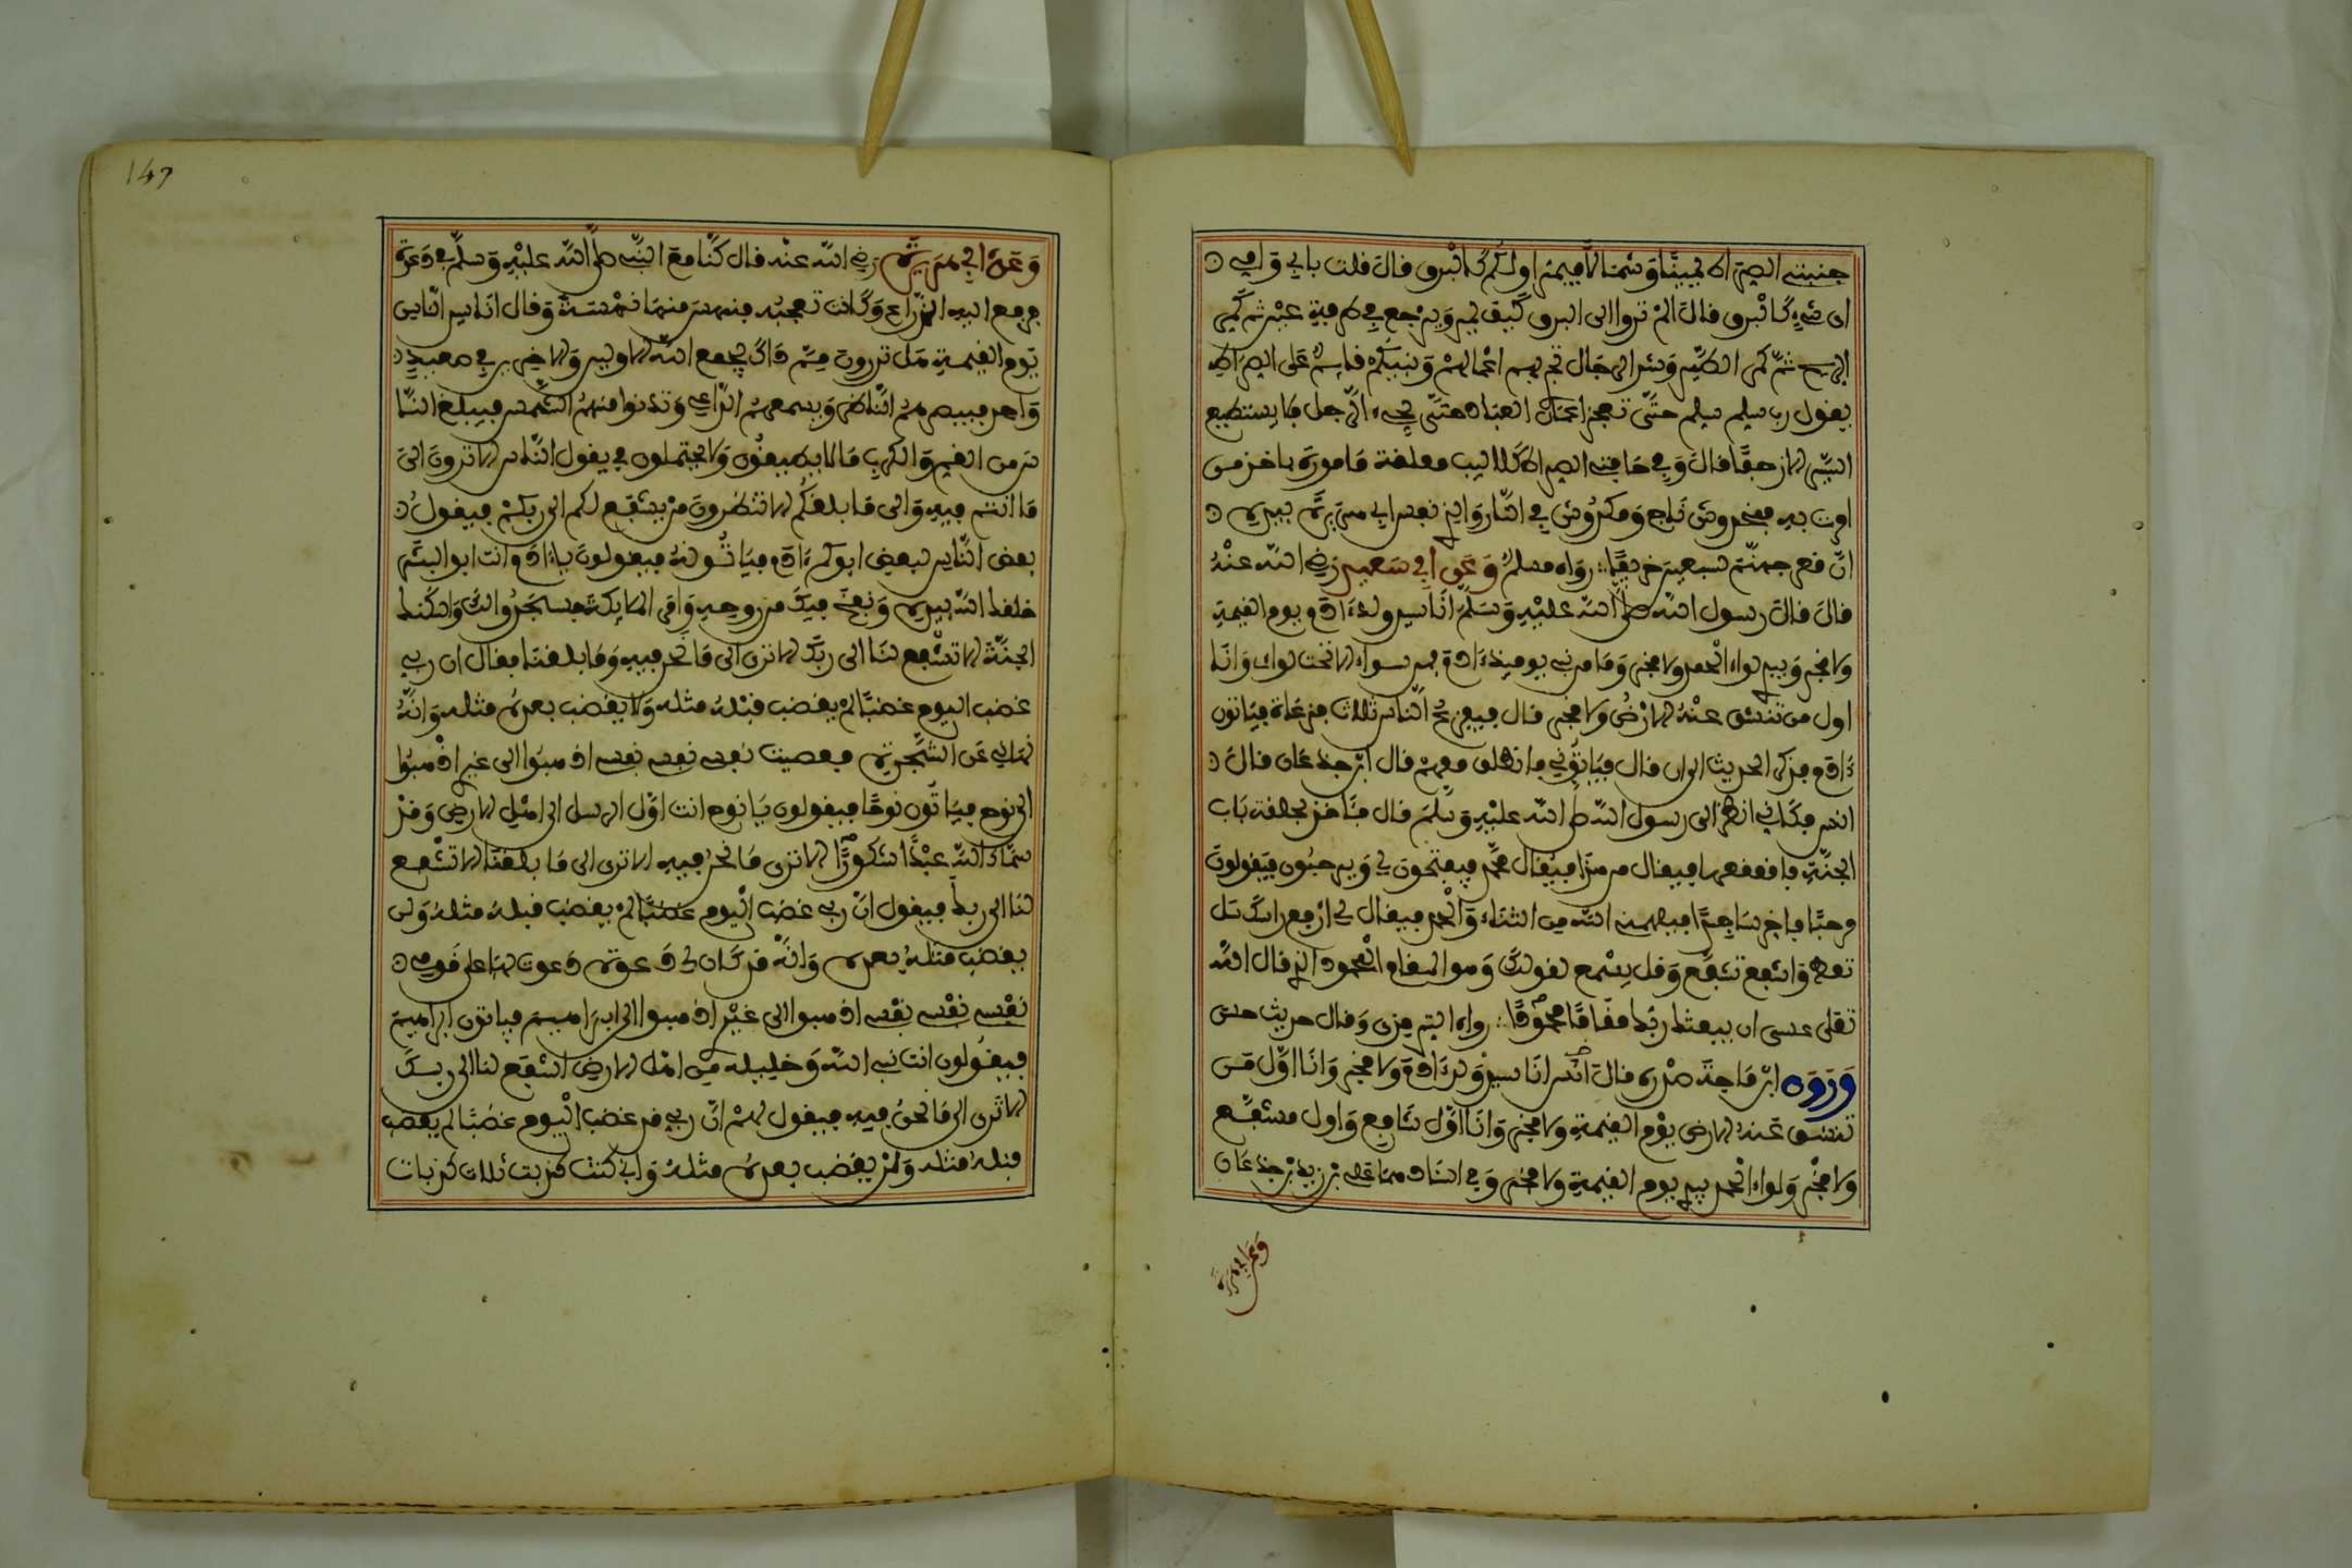 جنبتي الصراط يمينا وشمالا فيمر اولكم كالبرق قال قلت بابي وامي
اي شيء كالبرق قال الم تروا الى البرق كيف يمر ويرجع في طرفة عين ثم كمر
الريح ثم كمر الطير وشد الرجال تجري بهم اعمالهم ونبيكم قايم على الصراط
يقول رب سلم سلم حتى تعجز اعمال العباد حتى يجيء الرجل فلا يستطيع
السير الا زحفا قال وفي حافتي الصراط كلاليب معلقة مامورة باخذ من
امرت به فمخدوش ناج ومكدوش في النار والذي نفس ابي هريرة بيده
ان قعر جهنم لسبعين خريفا رواه مسلم وعن ابي سعيد رضي الله عنه
قال قال رسول الله صلى الله عليه وسلم انا سيد ولد ءادم يوم القيمة
ولا فخر وبيدي لواء الحمد ولا فخر وما من نبي يوميذ ءادم فمن سواه الا تحت لواي وانا
اول من تنشق عنه الارض ولا فخر قال فيفزع الناس ثلاث فزعات فياتون
ءادم فذكر الحديث الى ان قال فياتوني فانطلق معهم قال ابن جدعان قال
انس فكاني انظر الى رسول الله صلى الله عليه وسلم قال فآخذ بحلقة باب
الجنة فاقعقعها فيقال من هذا فيقال محمد فيفتحون لي ويرحبون فيقولون
مرحبا فاخر ساجدا فيلهمني الله من الثناء والحمد فيقال لي ارفع راسك سل
تعط واشفع تشفع وقل يسمع لقولك وهو المقام المحمود الذي قال الله
تعلى عسى ان يبعثك ربك مقاما محمودا رواه الترمذي وقال حديث حسن
وروى ابن ماجة صدره قال انا سيد ولد ءادم ولا فخر وانا اول من
تنشق عنه الارض يوم القيمة ولا فخر وانا اول شافع واول مشفع
ولا فخر ولواء الحمد بيدي يوم القيمة ولا فخر وفي اسنادهما علي بن زيد بن جدعان
وعن ابي هريرة
147
وعن ابي هريرة رضي الله عنه قال كنا مع النبي صلى الله عليه وسلم في دعوة
فرفع اليه الذراع وكانت تعجبه فنهس منها نهسة وقال انا سيد الناس
يوم القيمة هل تدرون مم ذاك يجمع الله الاولين والاخرين في صعيد
واحد فيبصرهم الناظر ويسمعهم الداعي وتدنوا منهم الشمس فيبلغ النا
س من الغم والكرب ما لا يطيقون ولا يحتملون فيقول الناس الا ترون الى
ما انتم فيه والى ما بلغكم الا تنظرون من يشفع لكم الى ربكم فيقول
بعض الناس لبعض ابوكم ءادم فياتونه فيقولون ياءادم انت ابو البشر
خلقك الله بيده ونفخ فيك من روحه وامر الملايكة فسجدوا لك واسكنك
الجنة الا تشفع لنا الى ربك الا ترى الى ما نحن فيه وما بلغنا فقال ان ربي
غضب اليوم غضبا لم يغضب قبله مثله ولا يغضب بعده مثله وانه
نهاني عن الشجرة فعصيت نفسي نفسي نفسي اذهبوا الى غيري اذهبوا
الى نوح فياتون نوحا فيقولون يا نوح انت اول الرسل الى اهل الارض وقد
سماك الله عبدا شكورا الا ترى ما نحن فيه الا ترى الى ما بلغنا الا تشفع
لنا الى ربك فيقول ان ربي غضب اليوم غضبا لم يغضب قبله مثله ولن
يغضب مثله بعده وانه قد كان لي دعوة دعوت بها على قومي
نفسي نفسي نفسي اذهبوا الى غيري اذهبوا الى ابراهيم فياتون ابراهيم
فيقولون انت نبي الله وخليله من اهل الارض اشفع لنا الى ربك
الا ترى الى ما نحن فيه فيقول لهم ان ربي قد غضب اليوم غضبا لم يغضب
قبله مثله ولن يغضب بعده مثله واني كنت كذبت ثلاث كذبات